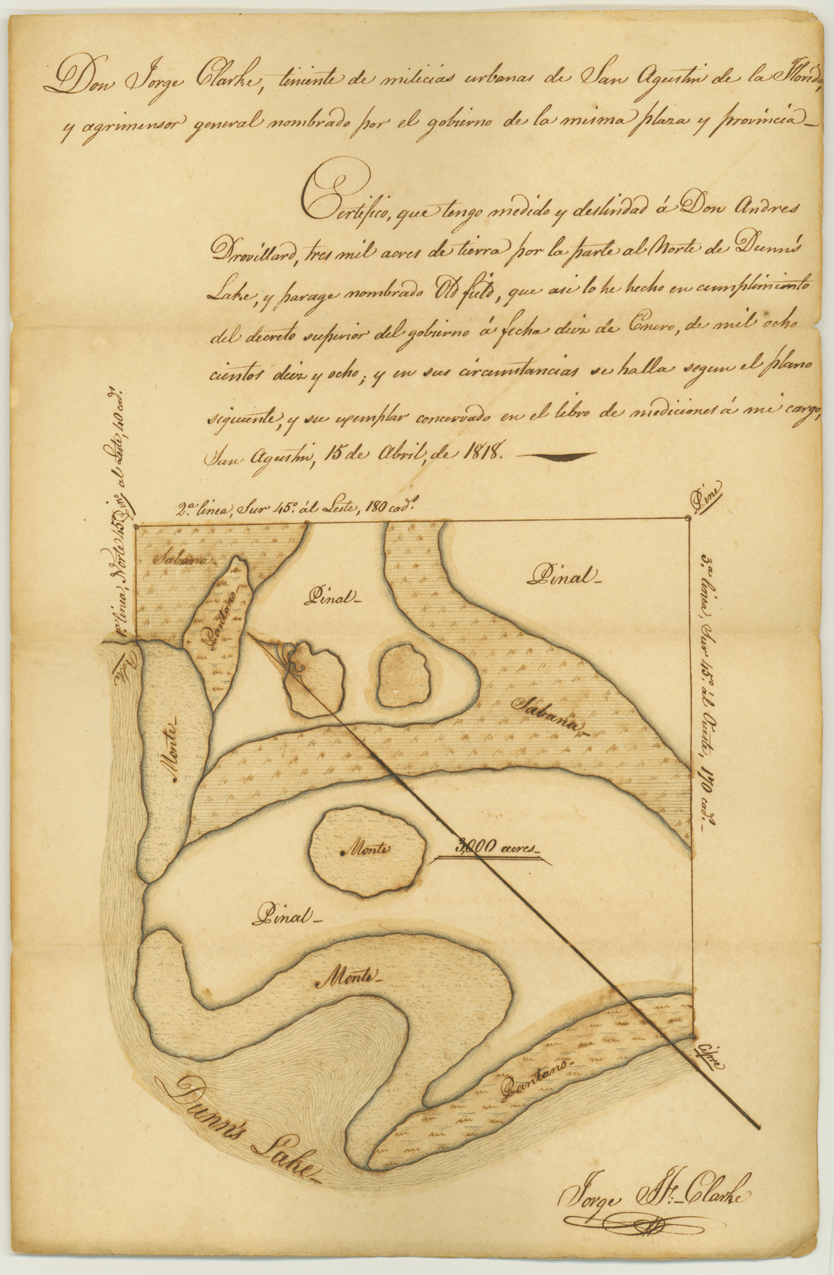 Don Jorge Clarke, teniente de milicias urbanas de San Agustin de la Florida,
y agrimensor general nombrado por el gobierno de la misma plaza y provincia_
Certifico, que tengo medido y deslindad á Don Andres
Drovillard, tres mil acres de tierra por la parte al Norte de Dunn's
Lake, y parage nombrado Old field, que asi lo he hecho en cumplimiento
del decreto superior del gobierno á fecha diez de Enero, de mil ocho
cientos diez y ocho; y en sus circunstancias se halla segun el plano
siguiente, y su exemplar concervado en el libro de mediciones á mi cargo,
San Agustin, 15 de Abril, de 1818.
1a. linea, Norte 45 al Leste, 40 cads.
2a. linea, Sur 45o. ál Leste, 180 cads.
Pine
3a. linea, Sur 45o. ál Oueste, 170 cads._
Sabana_
Pantano_
Pinal_
Pinal_
Sabana_
Monte_
Monte
3,000 acres_
Pinal_
Monte_
Pantano_
Dunn's Lake_
Jorge J. F. Clarke